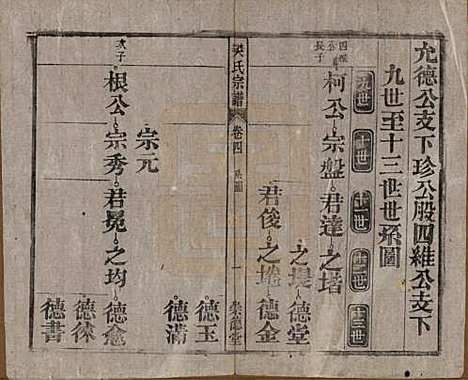 允德公支下珍公股四維公支下
九世至十三世世系圖
九世 十世 十一世 十二世 十三世
四維公長子
柯公 宗盤 君達 之堦
之堤 德堂
君俊 之埢 德金
氏宗譜 卷四 系圖 一
德玉
德清
宗元
次子
根公 宗秀 君冕 之均 德愈
德徠
德書